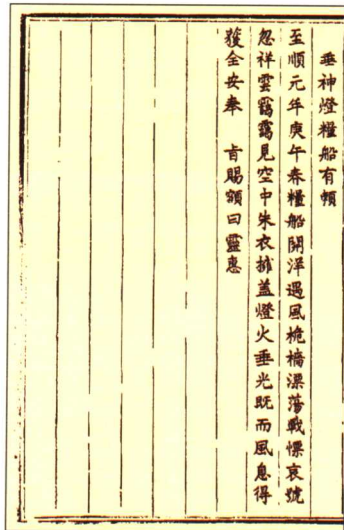 垂神燈糧船有賴
至順元年庚午春糧船開洋遇風桅檣漂蕩戰慄哀號
忽祥雲靄靄見空中朱衣擁蓋燈火垂光既而風息得
獲全安奉　旨賜額曰靈惠